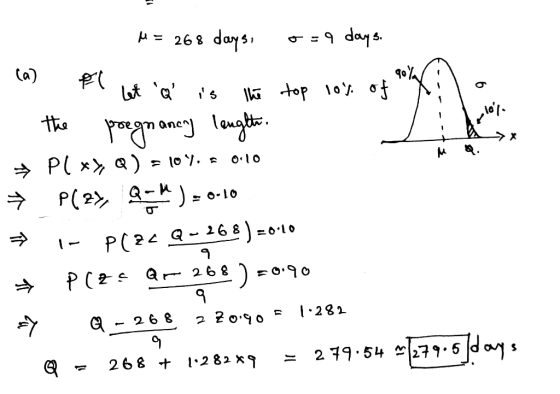 =
μ = 268 days, σ = 9 days.
(a) Let 'Q' is the top 10% of
the pregnancy length.
90% σ 10%
μ Q. x
⇒ P(x ≥ Q) = 10% = 0.10
⇒ P(z ≥ (Q-μ)/σ) = 0.10
⇒ 1 - P(z < (Q-268)/9) = 0.10
⇒ P(z ≤ (Q-268)/9) = 0.90
⇒ (Q-268)/9 = z0.90 = 1.282
Q = 268 + 1.282×9 = 279.54 ≃ 279.5 days